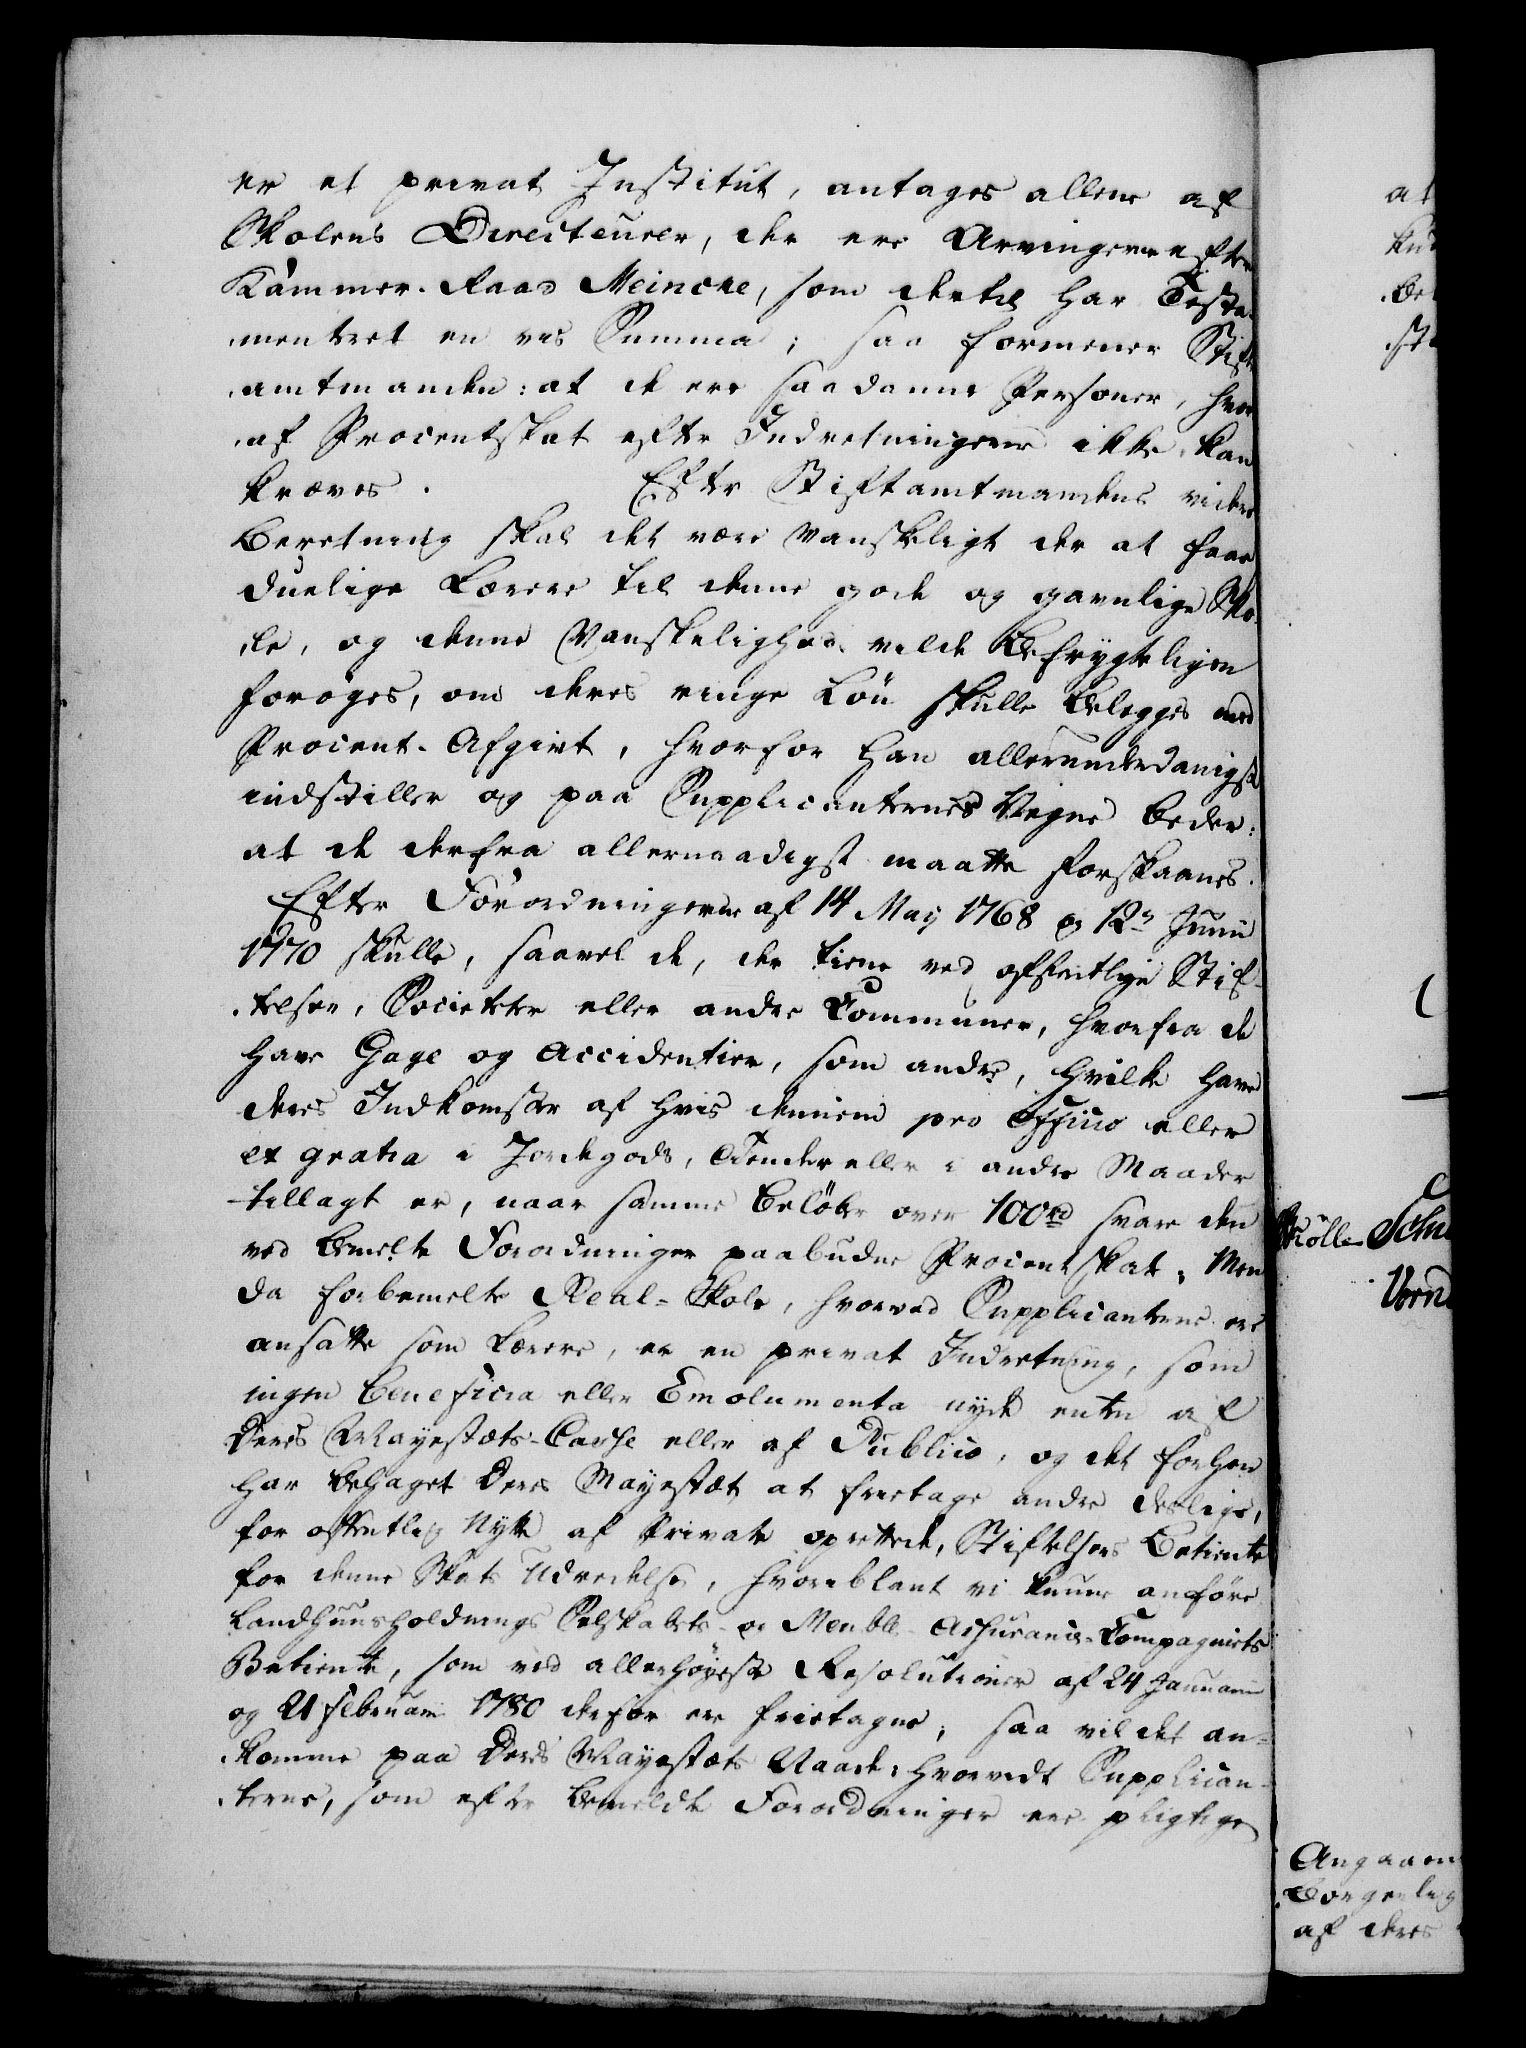 er et privat Institut, antages allene af
Skolens Directeurer, der ere Arvingerne efter
Kammer-Raad Meincke, som dertil har Testa-
mentert en vis Summa; saa formener Stift-
amtmanden: at de ere saadanne Personer, hvor-
af Procentskat efter Indretningerne ikke kan
kræves. Efter Stiftamtmandens videre
Beretning skal det være vanskeligt der at faae
duelige Lærere til denne gode og gavnlige Sko-
le, og denne Vanskelighed vilde befrygteligen
forøges, om deres ringe Løn skulle belegges med
Procent-Afgivt, hvorfor han allerunderdanigst
indstiller og paa Supplicanternes Vegne beder:
at de derfra allernaadigst maatte forskaanes.
Efter Forordningerne af 14 May 1768 og 12te Junii
1770 skulle, saavel de, der tiene ved offentlige Stif-
telser, Societeter eller andre Communer, hvorfra de
have Gage og Accidentier, som andre, hvilke have
deres Indkomster af hvis dennem pro Officio eller
ex gratia i Jordegods, Tiender eller i andre Maader
tillagt er, naar samme beløber over 100rd svare den
ved bemelte Forordninger paabudne Procentskat; Men
da forbemelte Real-Skole, hvorved Supplicanterne ere
ansatte som Lærere, er en privat Indretning, som
ingen beneficia eller Emolumenta nyde enten af
Deres Mayestæts-Casse eller af Publico, og det forhen
har behaget Deres Mayestæt at fritage andre deslige,
for offentlig Nytte af Private oprettede, Stiftelsers Betiente
for denne Skats Udredelse, hvoriblant vi kunne anføre
Landhuusholdnings Selskabets- og Meuble-Assurance-Compagniets
Betiente, som ved allerhøyeste Resolutioner af 24 Januarii
og 21 Februarii 1780 derfor ere frietagne; saa vil det an-
komme paa Deres Mayestæts Naade: hvorvidt Supplican-
terne, som efter bemeldte Forordninger ere pligtige
at
Møller Schu
Angaaen
Borgerlig
af deres